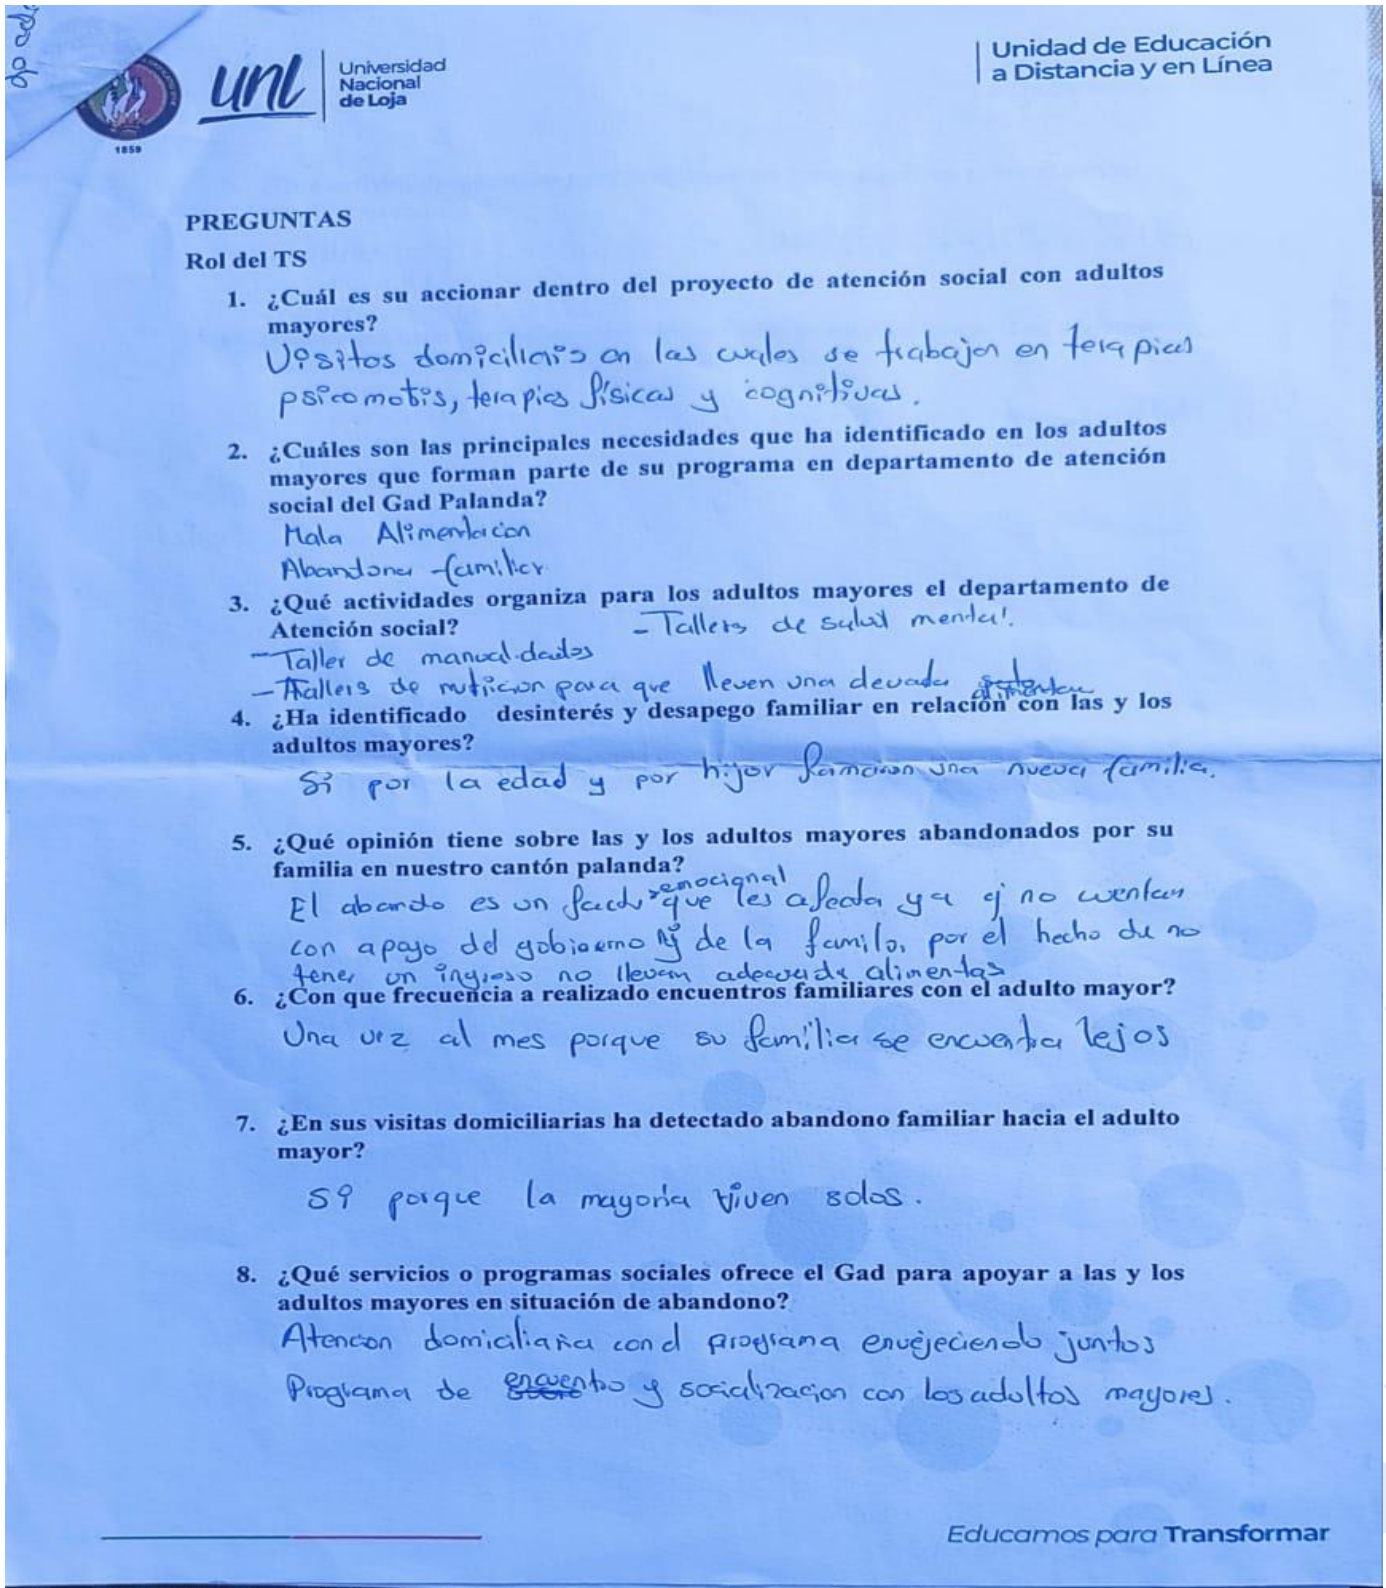 unl
Universidad
Nacional
de Loja
Unidad de Educación
a Distancia y en Línea
1859
PREGUNTAS
Rol del TS
1. ¿Cuál es su accionar dentro del proyecto de atención social con adultos
mayores?
Visitas domiciliaris en las cuales se trabajan en terapias
psicomotis, terapias físicas y cognitivas.
2. ¿Cuáles son las principales necesidades que ha identificado en los adultos
mayores que forman parte de su programa en departamento de atención
social del Gad Palanda?
Mala Alimentacion
Abandono familiar
3. ¿Qué actividades organiza para los adultos mayores el departamento de
Atención social?
- Tallers de salud mental.
- Taller de manualidades
- Tallers de nutricion para que lleven una
4. ¿Ha identificado desinterés y desapego familiar en relación con las y los
adultos mayores?
Si por la edad y por hijor una nueva familia.
5. ¿Qué opinión tiene sobre las y los adultos mayores abandonados por su
familia en nuestro cantón palanda?
emocional
El abando es un que les afecta ya q no cuentan
con apoyo del gobierno y de la por el hecho de no
tener un ingreso no llevan
6. ¿Con que frecuencia a realizado encuentros familiares con el adulto mayor?
Una vez al mes porque su familia se encuentra lejos
7. ¿En sus visitas domiciliarias ha detectado abandono familiar hacia el adulto
mayor?
Si porque la mayoria viven solos.
8. ¿Qué servicios o programas sociales ofrece el Gad para apoyar a las y los
adultos mayores en situación de abandono?
Atencion domiciliaria con el programa envejeciendo juntos
Programa de encuentro y socializacion con los adultos mayores.
Educamos para Transformar